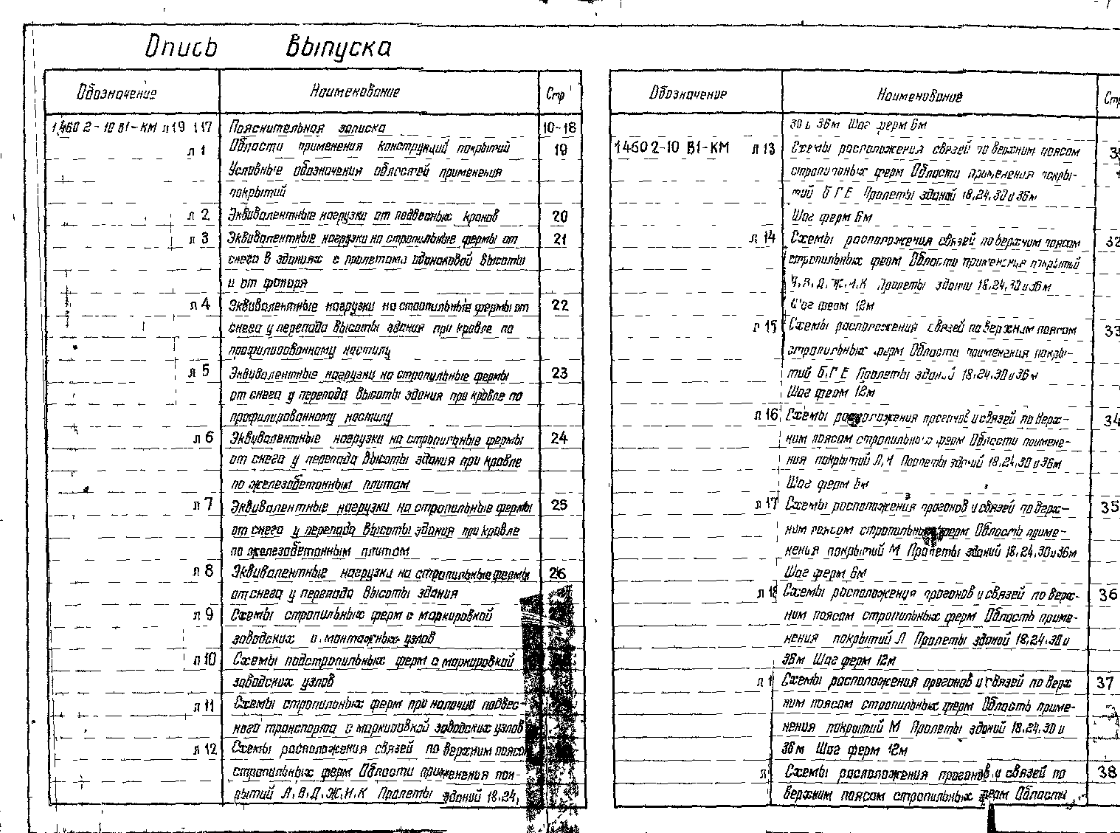 Опись выпуска
Обозначение Наименование Стр
1460 2-10 В1-КМ л19 117 Пояснительная записка 10-18
л 1 Области применения конструкций покрытий 19
Условные обозначения областей применения
покрытий
л 2 Эквивалентные нагрузки от подвесных кранов 20
л 3 Эквивалентные нагрузки на стропильные фермы от 21
снега в зданиях с пролетами одинаковой высоты
и от фонаря
л 4 Эквивалентные нагрузки на стропильные фермы от 22
снега у перепада высоты здания при кровле по
профилированному настилу
л 5 Эквивалентные нагрузки на стропильные фермы 23
от снега у перепада высоты здания при кровле по
профилированному настилу
л 6 Эквивалентные нагрузки на стропильные фермы 24
от снега у перепада высоты здания при кровле
по железобетонным плитам
л 7 Эквивалентные нагрузки на стропильные фермы 25
от снега у перепада высоты здания при кровле
по железобетонным плитам
л 8 Эквивалентные нагрузки на стропильные фермы 26
от снега у перепада высоты здания
л 9 Схемы стропильных ферм с маркировкой
заводских и монтажных узлов
л 10 Схемы подстропильных ферм с маркировкой
заводских узлов
л 11 Схемы стропильных ферм при наличии подвес-
ного транспорта с маркировкой заводских узлов
л 12 Схемы расположения связей по верхним пояса
стропильных ферм Области применения пок-
рытий Л.В.Д.Ж.И.К Пролеты зданий 18,24,
Обозначение Наименование Стр
30 и 36м Шаг ферм 6м
1460 2-10 В1-КМ л 13 Схемы расположения связей по верхним поясам
стропильных ферм Области применения покры-
тий Б Г Е Пролеты зданий 18,24,30 и 36м
Шаг ферм 6м
л 14 Схемы расположения связей по верхним поясам 32
стропильных ферм Области применения покрытий
В, Д, Ж, И, К Пролеты зданий 18,24,30 и 36м
Шаг ферм 12м
л 15 Схемы расположения связей по верхним поясам 33
стропильных ферм Области применения покры-
тий Б,Г,Е Пролеты зданий 18,24,30 и 36м
Шаг ферм 12м
л 16 Схемы расположения прогонов и связей по верх- 34
ним поясам стропильных ферм Области примене-
ния покрытий Л, Пролеты зданий 18,24,30 и 36м
Шаг ферм 6м
л 17 Схемы расположения прогонов и связей по верх- 35
ним поясам стропильных ферм Область приме-
нения покрытий М Пролеты зданий 18,24,30 и 36м
Шаг ферм 6м
л 18 Схемы расположения прогонов и связей по верх- 36
ним поясам стропильных ферм Область приме-
нения покрытий Л Пролеты зданий 18,24,30 и
36м Шаг ферм 12м
л 1 Схемы расположения прогонов и связей по верх 37
ним поясам стропильных ферм Область приме-
нения покрытий М Пролеты зданий 18,24,30 и
36м Шаг ферм 12м
л Схемы расположения прогонов и связей по 38
верхним поясам стропильных ферм Области